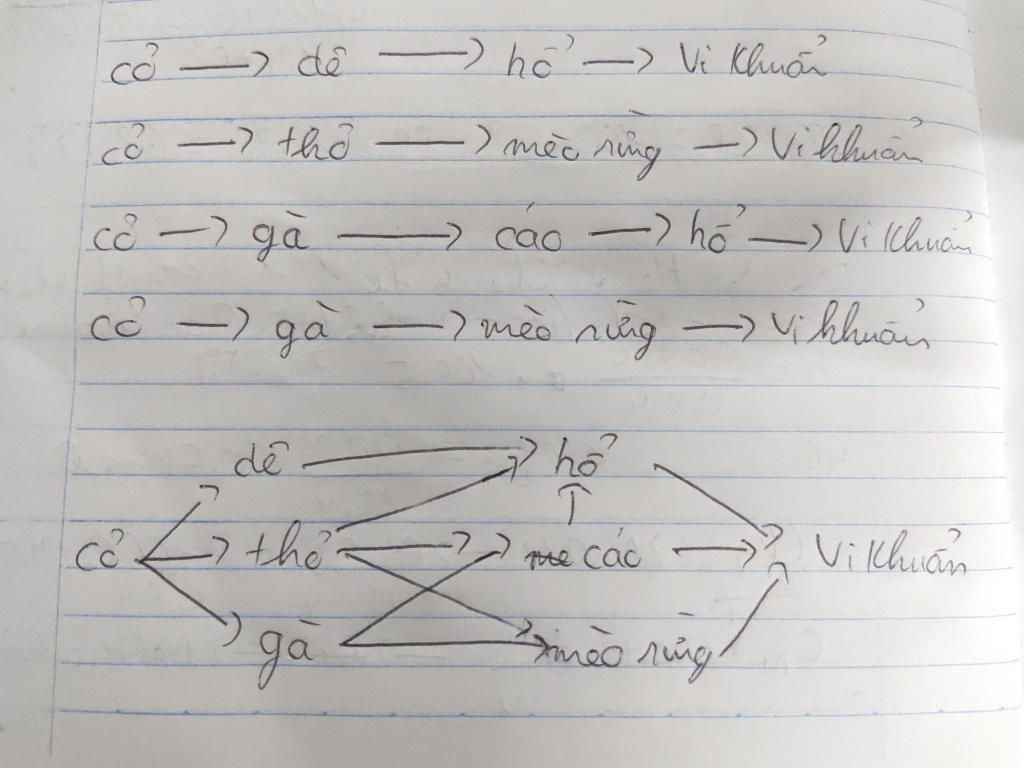 cỏ → dê → hổ → Vi Khuẩn
cỏ → thỏ → mèo rừng → Vi khuẩn
cỏ → gà → cáo → hổ → Vi Khuẩn
cỏ → gà → mèo rừng → Vi khuẩn
dê → hổ
cỏ → thỏ → me cáo → Vi Khuẩn
gà → mèo rừng